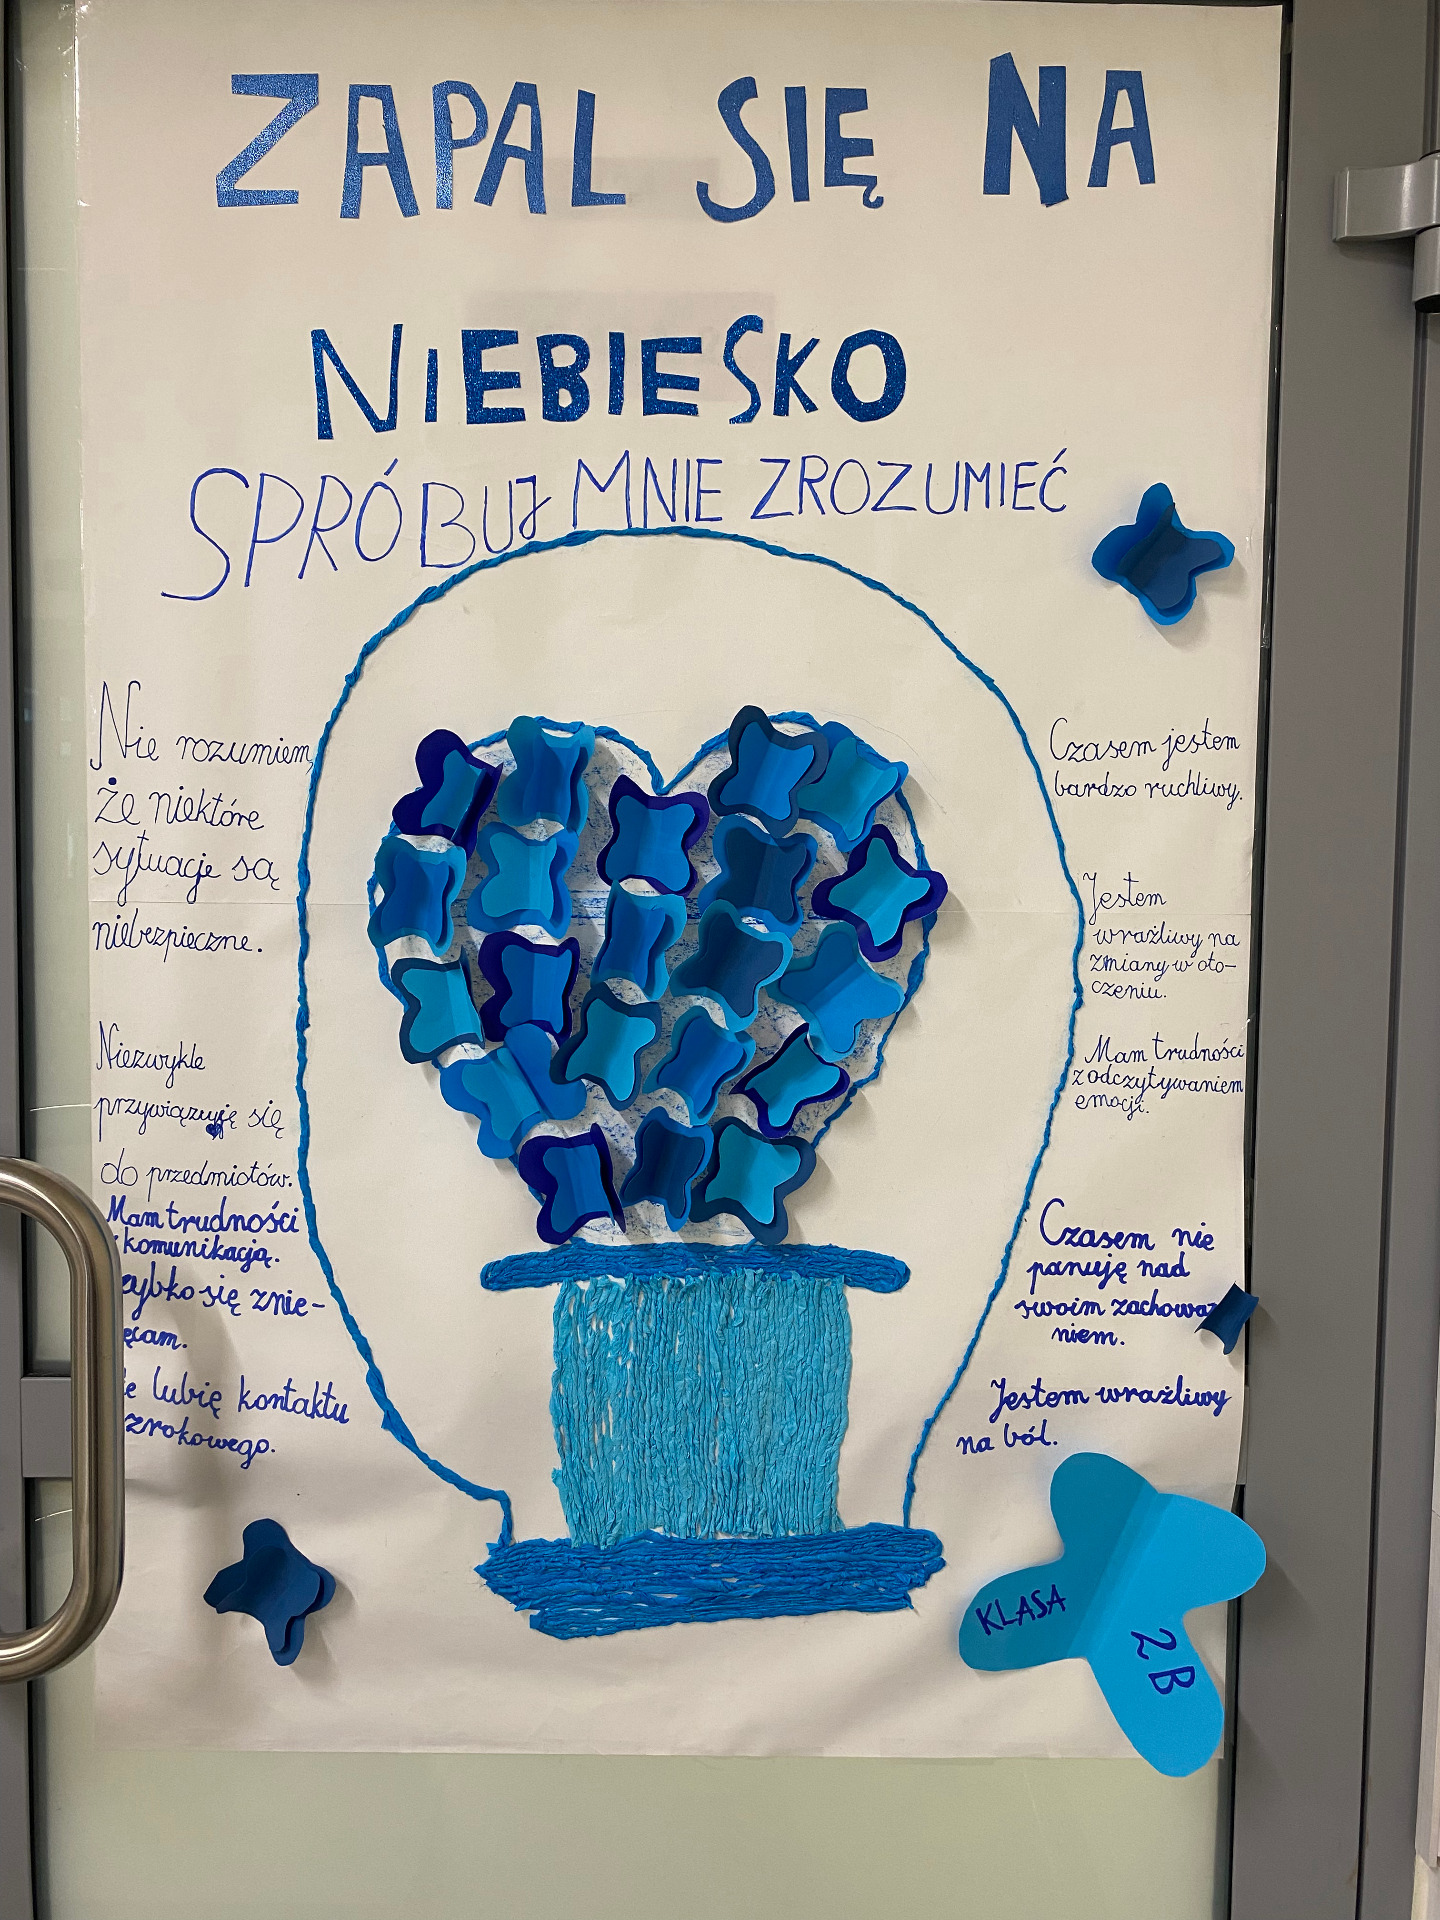 ZAPAL SIĘ NA
NIEBIESKO
SPRÓBUJ MNIE ZROZUMIEĆ
Nie rozumiem,
że niektóre
sytuacje są
niebezpieczne.
Niezwykle
przywiązuję się
do przedmiotów.
Mam trudności
komunikacją.
się znie-
cam.
lubię kontaktu
zrokowego.
Czasem jestem
bardzo ruchliwy.
Jestem
wrażliwy na
zmiany w oto-
czeniu.
Mam trudności
z odczytywaniem
emocji.
Czasem nie
panuję nad
swoim zachowa
niem.
Jestem wrażliwy
na ból.
KLASA
2B